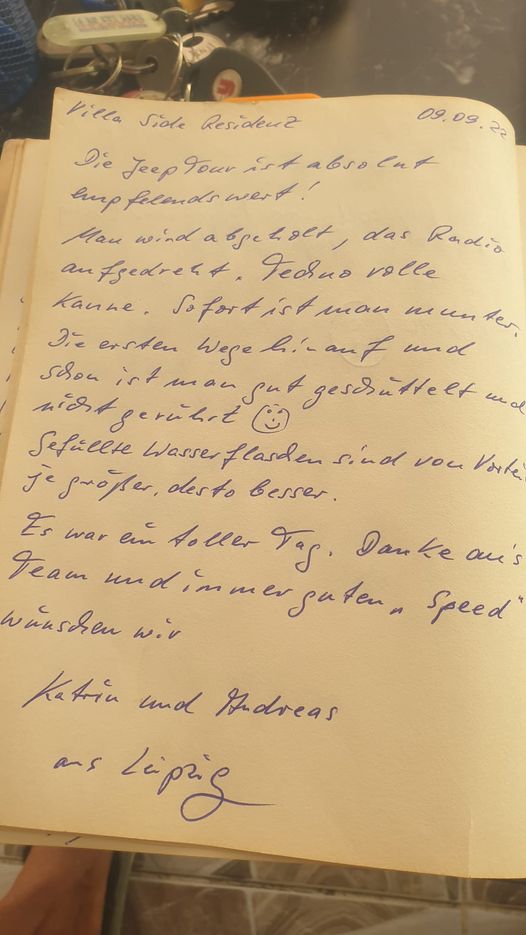 Villa Side Residenz 09.09.22
Die Jeep Tour ist absolut
empfelendswert!
Man wird abgeholt, das Radio
aufgedreht. Techno volle
Kanne. Sofort ist man munter.
Die ersten Wege hinauf und
schon ist man gut geschüttelt und
nicht gerührt
Gefüllte Wasserflaschen sind von Vorteil
je größer, desto besser.
Es war ein toller Tag. Danke an's
Team und immer guten „Speed"
wünschen wir
Katrin und Andreas
aus Leipzig